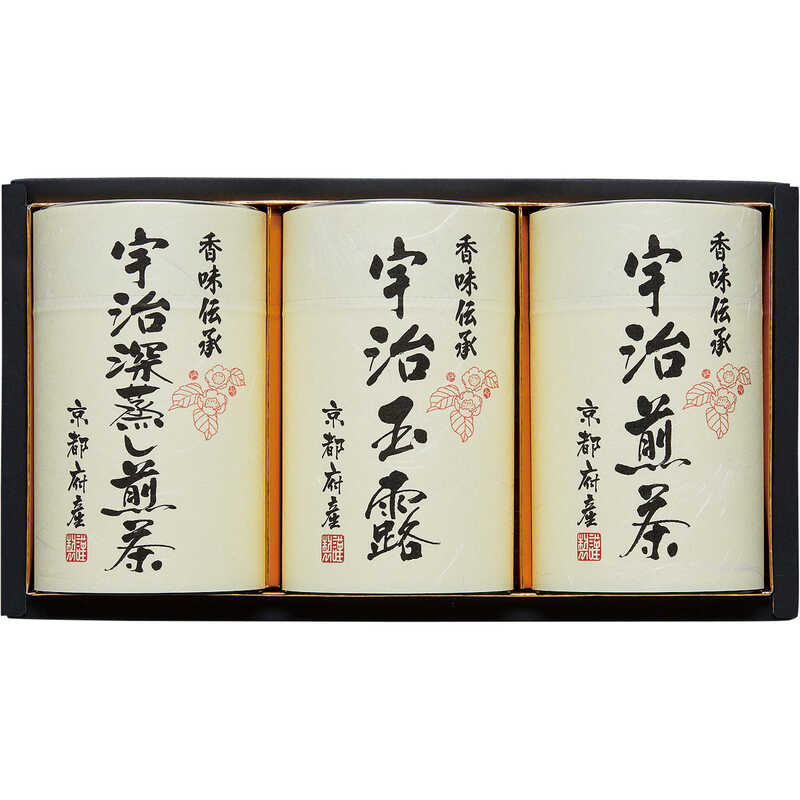 香味伝承
宇治深蒸し煎茶
京都府産
謹製
香味伝承
宇治玉露
京都府産
謹製
香味伝承
宇治煎茶
京都府産
謹製